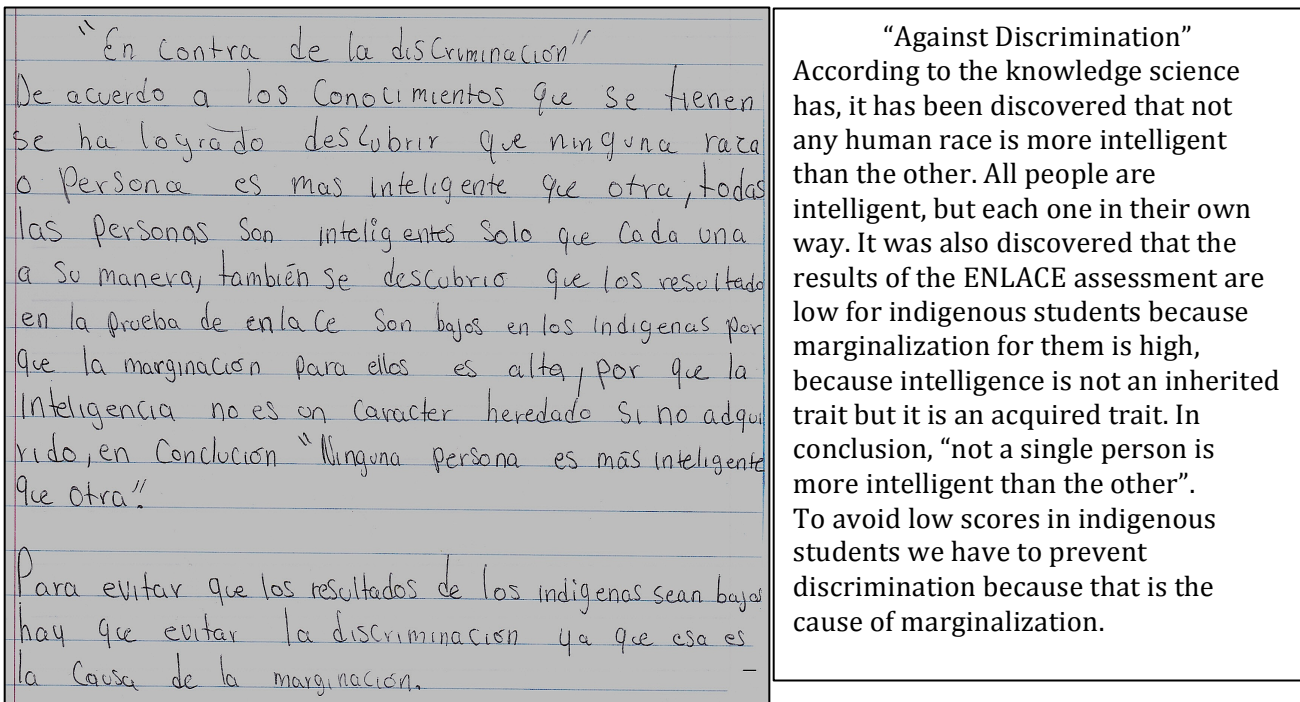 “En contra de la discriminación”
De acuerdo a los Conocimientos que se tienen
se ha logrado descubrir que ninguna raza
o persona es mas inteligente que otra, todas
las personas son inteligentes Solo que Cada una
a su manera, también se descubrio que los resultado
en la prueba de enlaCe Son bajos en los indigenas por
que la marginación para ellos es alta, por que la
inteligencia no es un Caracter heredado Si no adqui
rido, en Conclución “Ninguna persona es más inteligente
que otra”.
Para evitar que los resultados de los indigenas sean bajos
hay que evitar la discriminación ya que esa es
la Causa de la marginación.
“Against Discrimination”
According to the knowledge science
has, it has been discovered that not
any human race is more intelligent
than the other. All people are
intelligent, but each one in their own
way. It was also discovered that the
results of the ENLACE assessment are
low for indigenous students because
marginalization for them is high,
because intelligence is not an inherited
trait but it is an acquired trait. In
conclusion, “not a single person is
more intelligent than the other”.
To avoid low scores in indigenous
students we have to prevent
discrimination because that is the
cause of marginalization.